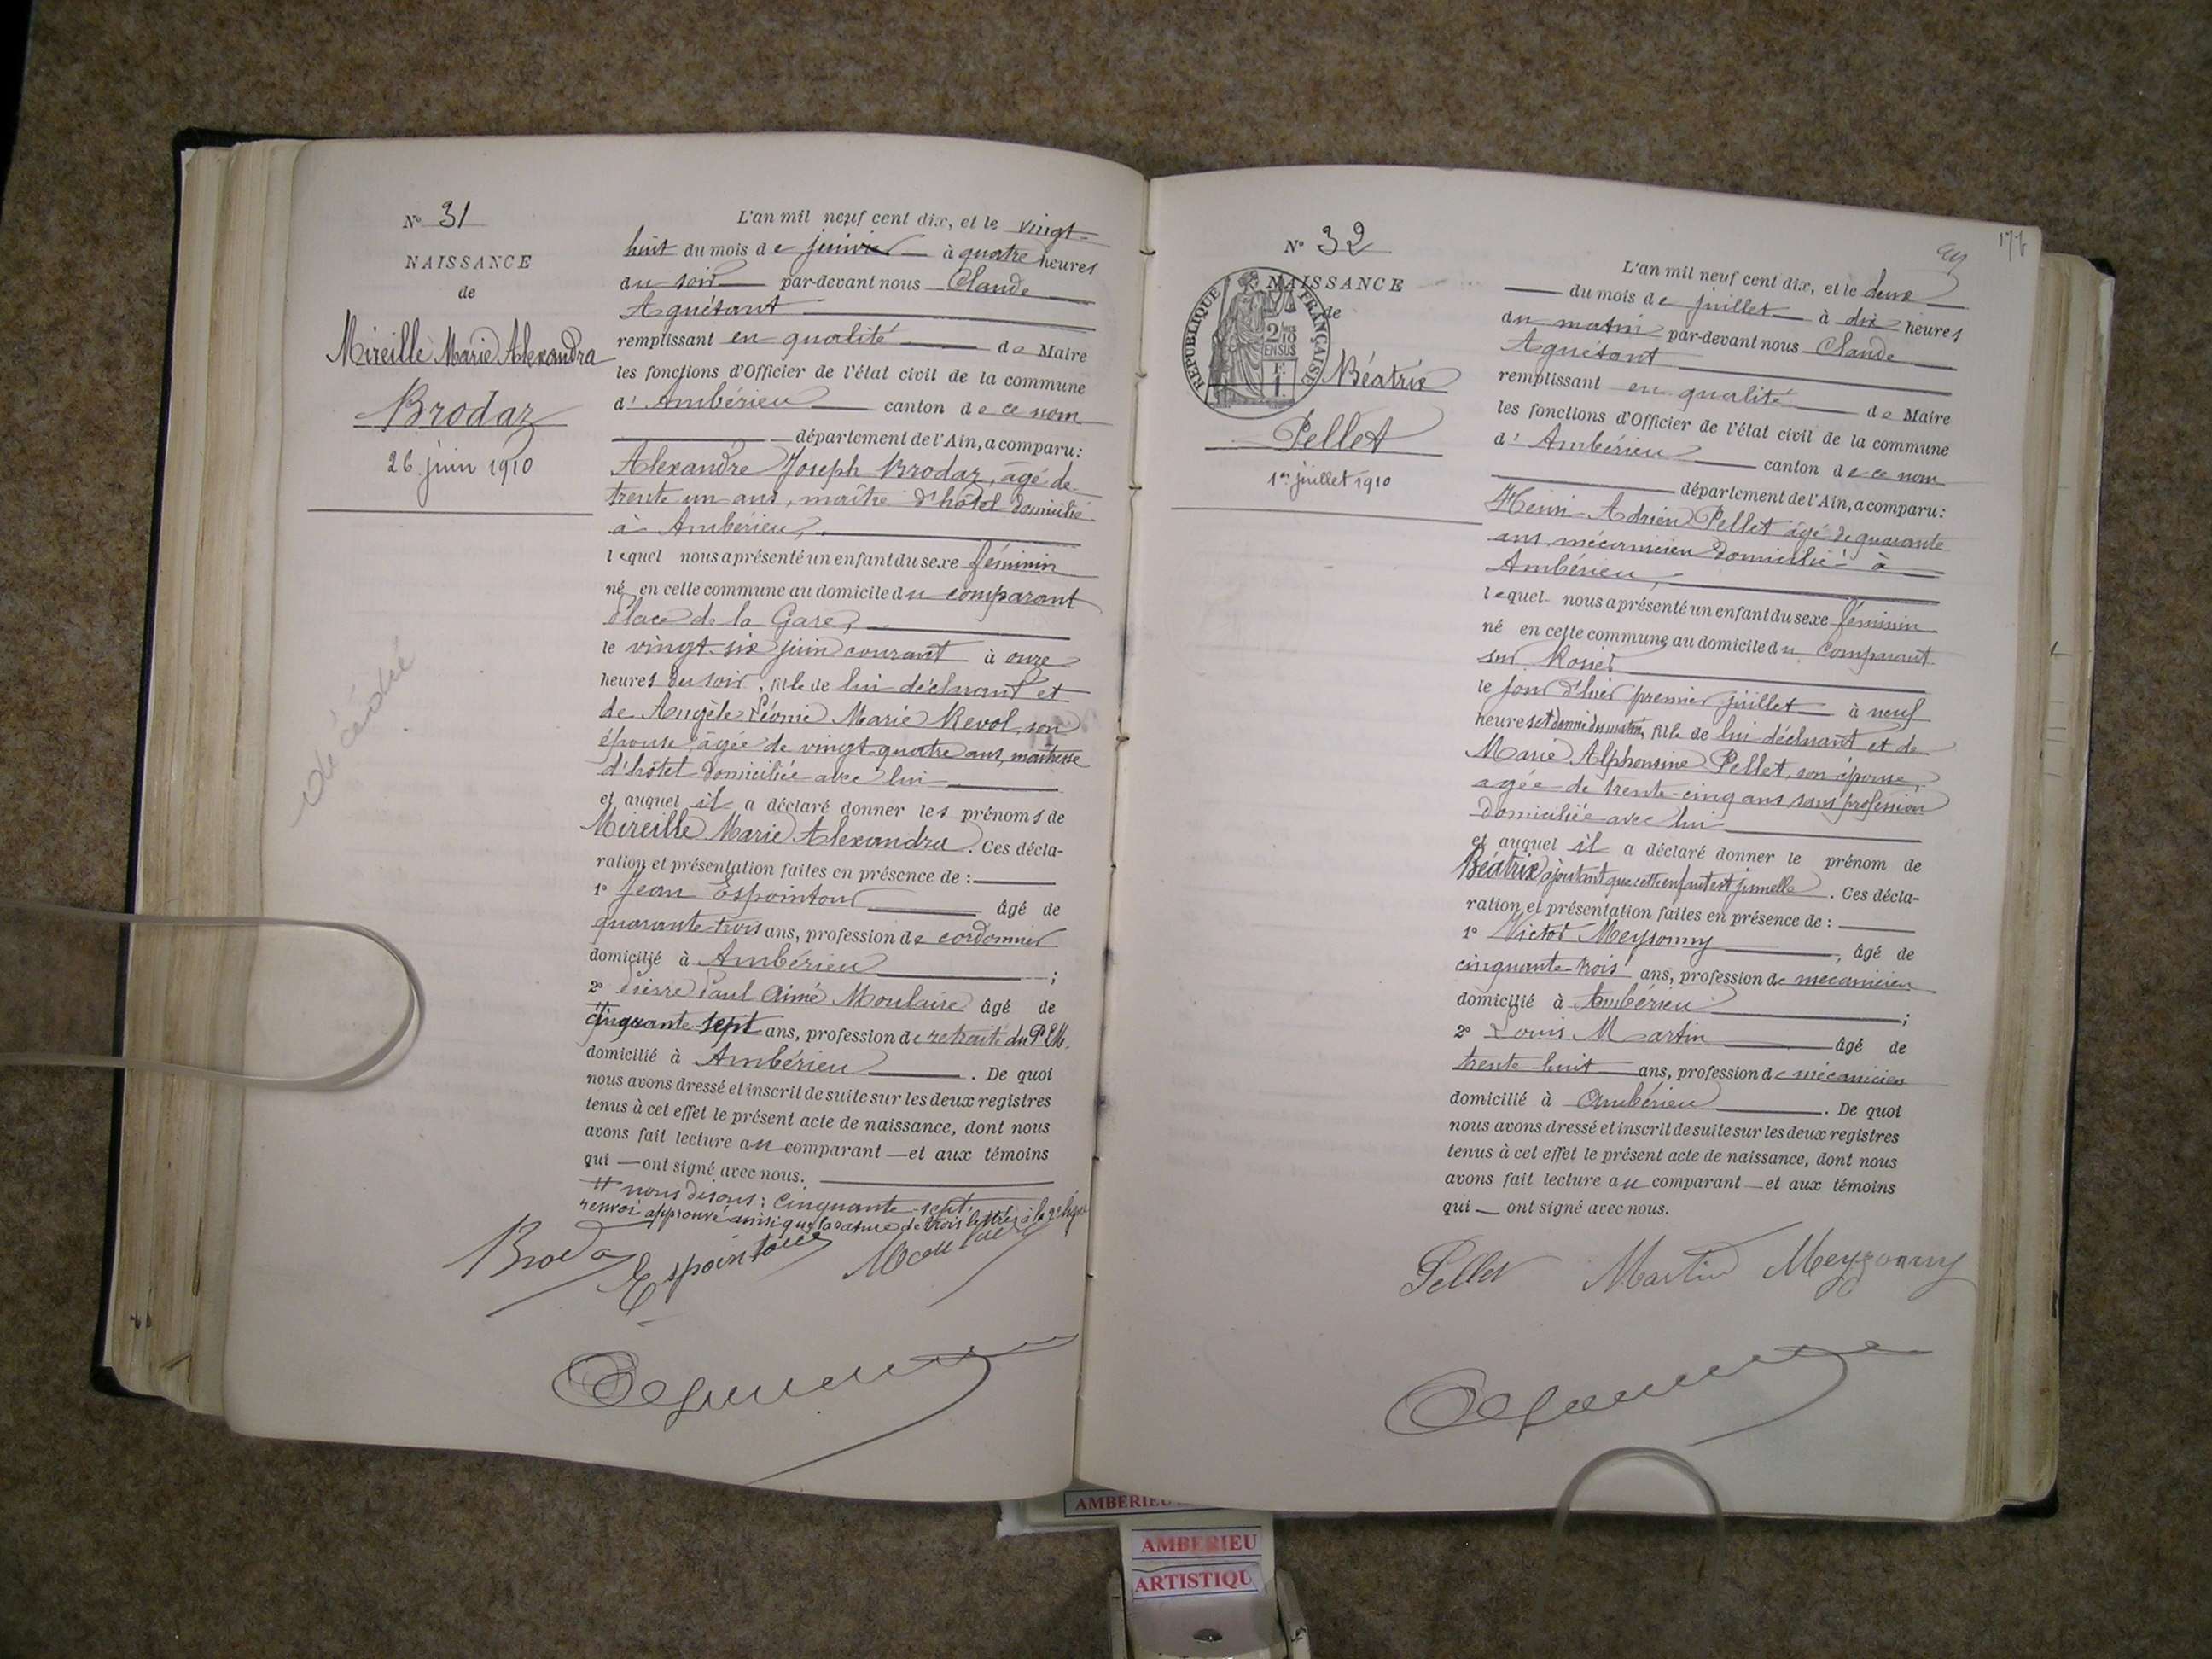 N° 31
NAISSANCE
de
Mireille Marie Alexandra
Brodaz
26 juin 1910
décédée
L'an mil neuf cent dix, et le vingt-
huit du mois de à quatre heures
du soir par-devant nous Claude
Aguétant
remplissant en qualité de Maire
les fonctions d'Officier de l'état civil de la commune
d' Ambérieu canton de ce nom
département de l'Ain, a comparu:
Alexandre Joseph Brodaz, âgé de
trente un ans, maître d'hôtel domicilié
à Ambérieu,
lequel nous a présenté un enfant du sexe féminin
né en cette commune au domicile du comparant
place de la Gare,
le vingt-six juin courant à onze
heures du soir, fille de lui déclarant et
de Angèle Léonie Marie Revol, son
épouse âgée de vingt-quatre ans, maîtresse
d'hôtel domiciliée avec lui
et auquel il a déclaré donner les prénoms de
Mireille Marie Alexandra. Ces décla-
ration et présentation faites en présence de :
1° Jean Espointour âgé de
quarante-trois ans, profession de cordonnier
domicilié à Ambérieu ;
2° Pierre Paul Aimé Moulaire âgé de
cinquante-sept ans, profession de retraité du P.L.M.
domicilié à Ambérieu . De quoi
nous avons dressé et inscrit de suite sur les deux registres
tenus à cet effet le présent acte de naissance, dont nous
avons fait lecture au comparant — et aux témoins
qui — ont signé avec nous.
# nous disons : cinquante-sept.
renvoi approuvé ainsi que la rature de trois lettres à la 2e ligne
Brodaz Espointour Moulaire
N° 32
NAISSANCE
de
REPUBLIQUE FRANÇAISE
2/10 EN SUS
Béatrix
Pellet
1er juillet 1910
L'an mil neuf cent dix, et le deux
du mois de juillet à dix heures
du matin par-devant nous Claude
Aguétant
remplissant en qualité de Maire
les fonctions d'Officier de l'état civil de la commune
d' Ambérieu canton de ce nom
département de l'Ain, a comparu:
Henri Adrien Pellet âgé de quarante
ans, mécanicien domicilié à
Ambérieu,
lequel nous a présenté un enfant du sexe féminin
né en cette commune au domicile du comparant
sur Rosier
le jour d'hier premier juillet à neuf
heures et demie du matin, fille de lui déclarant et de
Marie Alphonsine Pellet, son épouse
agée de trente-cinq ans sans profession
domiciliée avec lui
et auquel il a déclaré donner le prénom de
Béatrix ajoutant que cette enfant est jumelle. Ces décla-
ration et présentation faites en présence de :
1° Victor Meysonny , âgé de
cinquante-trois ans, profession de mécanicien
domicilié à Ambérieu ;
2° Louis Martin âgé de
trente-huit ans, profession de mécanicien
domicilié à Ambérieu . De quoi
nous avons dressé et inscrit de suite sur les deux registres
tenus à cet effet le présent acte de naissance, dont nous
avons fait lecture au comparant — et aux témoins
qui — ont signé avec nous.
Pellet Martin Meyzonny
AMBERIEU
AMBERIEU
ARTISTIQU